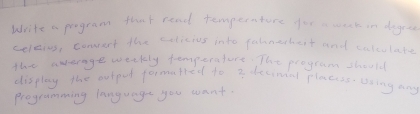 Write a program that read temperature for a week in degree
Celcius, convert the celicius into fahrenheit and calculate
the average weekly temperature. The program should
display the output formatted to 2 decimal places. Using any
programming language you want.